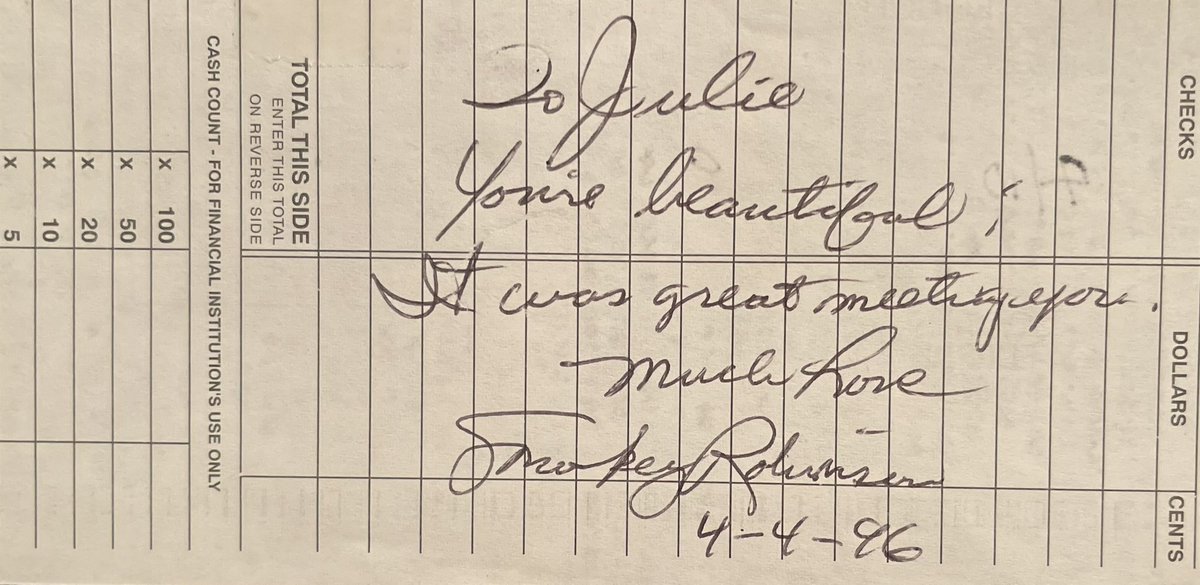 To Julie
You're beautiful!
It was great meeting you.
Much Love
Smokey Robinson
4-4-96
CHECKS
DOLLARS
CENTS
TOTAL THIS SIDE
ENTER THIS TOTAL
ON REVERSE SIDE
CASH COUNT - FOR FINANCIAL INSTITUTION'S USE ONLY
x 100
x 50
x 20
x 10
x 5